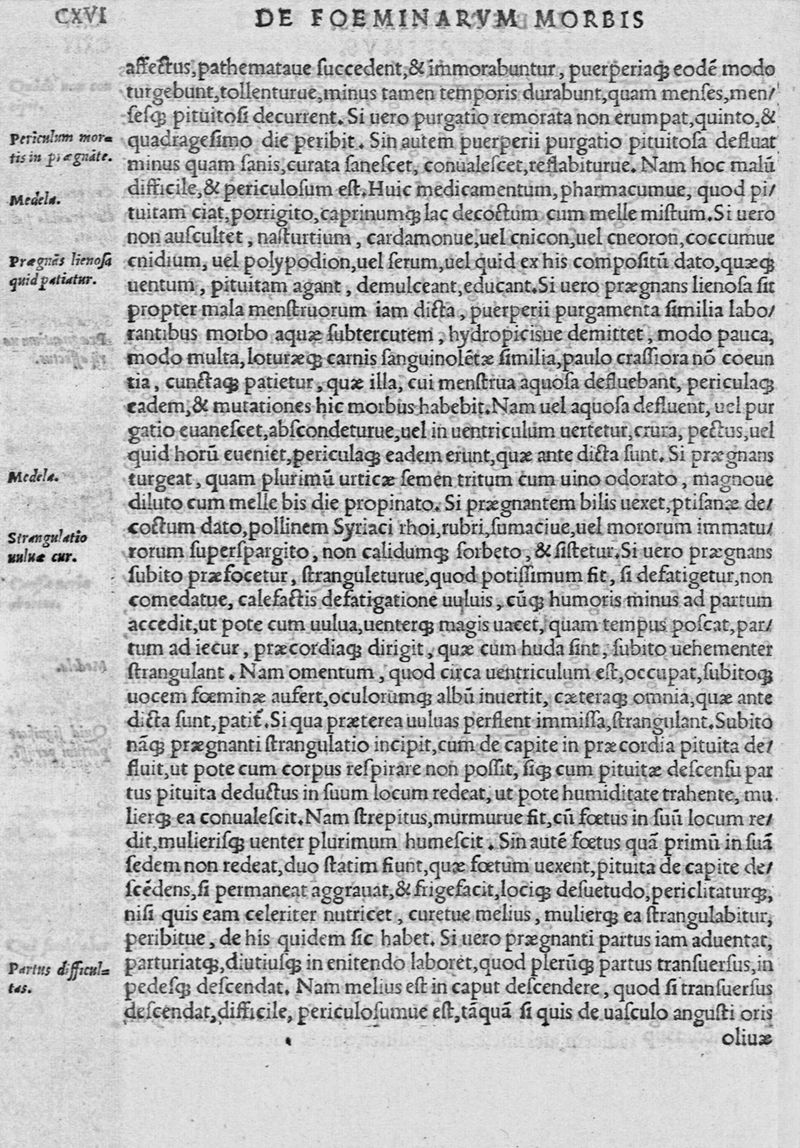 CXVI DE FOEMINARVM MORBIS
affectus,pathemataue succedent,& immorabuntur, puerperiaqꝫ eodẽ modo
turgebunt,tollenturue,minus tamen temporis durabunt,quam menses,men/
sesqꝫ pituitosi decurrent. Si uero purgatio remorata non erumpat,quinto,&
Periculum mor=
tis in prægnãte.
quadragesimo die peribit. Sin autem puerperii purgatio pituitosa defluat
minus quam sanis,curata sanescet, conualescet,reflabiturue. Nam hoc malũ
Medela.
difficile,& periculosum est.Huic medicamentum,pharmacumue, quod pi/
tuitam ciat,porrigito,caprinumqꝫ lac decoctum cum melle mistum.Si uero
non auscultet, nasturtium, cardamonue,uel cnicon,uel cneoron,coccumue
Prægnãs lienosa
quid patiatur.
cnidium, uel polypodion,uel serum,uel quid ex his compositũ dato,quæqꝫ
uentum, pituitam agant, demulceant,educant.Si uero prægnans lienosa sit
propter mala menstruorum iam dicta, puerperii purgamenta similia labo/
rantibus morbo aquæ subtercutem, hydropicisue demittet, modo pauca,
modo multa,loturæqꝫ carnis sanguinolẽtæ similia,paulo crassiora nõ coeun
tia, cunctaqꝫ patietur, quæ illa, cui menstrua aquosa defluebant, periculaqꝫ
eadem,& mutationes hic morbus habebit.Nam uel aquosa defluent, uel pur
gatio euanescet,abscondeturue,uel in uentriculum uertetur,crura, pectus,uel
quid horũ eueniet,periculaqꝫ eadem erunt,quæ ante dicta sunt. Si prægnans
Medela.
turgeat, quam plurimũ urticæ semen tritum cum uino odorato, magnoue
diluto cum melle bis die propinato. Si prægnantem bilis uexet,ptisanæ de/
coctum dato,pollinem Syriaci rhoi,rubri,sumaciue,uel mororum immatu/
Strangulatio
uuluæ cur.
rorum superspargito, non calidumqꝫ sorbeto, & sistetur.Si uero prægnans
subito præfocetur, stranguleturue,quod potissimum fit, si defatigetur,non
comedatue, calefactis defatigatione uuluis, cũqꝫ humoris minus ad partum
accedit,ut pote cum uulua,uenterqꝫ magis uacet, quam tempus poscat,par/
tum ad iecur, præcordiaqꝫ dirigit, quæ cum huda sint, subito uehementer
strangulant. Nam omentum, quod circa uentriculum est,occupat,subitoqꝫ
uocem fœminæ aufert,oculorumqꝫ albũ inuertit, cæteraqꝫ omnia,quæ ante
dicta sunt,patit͛. Si qua præterea uuluas perflent immissa,strangulant.Subito
nãqꝫ prægnanti strangulatio incipit,cum de capite in præcordia pituita de/
fluit,ut pote cum corpus respirare non possit, siqꝫ cum pituitæ descensu par
tus pituita deductus in suum locum redeat, ut pote humiditate trahente, mu
lierqꝫ ea conualescit.Nam strepitus,murmurue fit,cũ fœtus in suũ locum re/
dit,mulierisqꝫ uenter plurimum humescit. Sin autẽ fœtus quã primũ in suã
sedem non redeat,duo statim fiunt,quæ fœtum uexent,pituita de capite de/
scẽdens,si permaneat aggrauat,& frigefacit,lociqꝫ desuetudo,periclitaturqꝫ,
nisi quis eam celeriter nutricet, curetue melius, mulierqꝫ ea strangulabitur,
peribitue, de his quidem sic habet. Si uero prægnanti partus iam aduentat,
Partus difficul=
tas.
parturiatqꝫ,diutiusqꝫ in enitendo laboret,quod plerũqꝫ partus transuersus,in
pedesqꝫ descendat. Nam melius est in caput descendere, quod si transuersus
descendat,difficile, periculosumue est,tãquã si quis de uasculo angusti oris
oliuæ